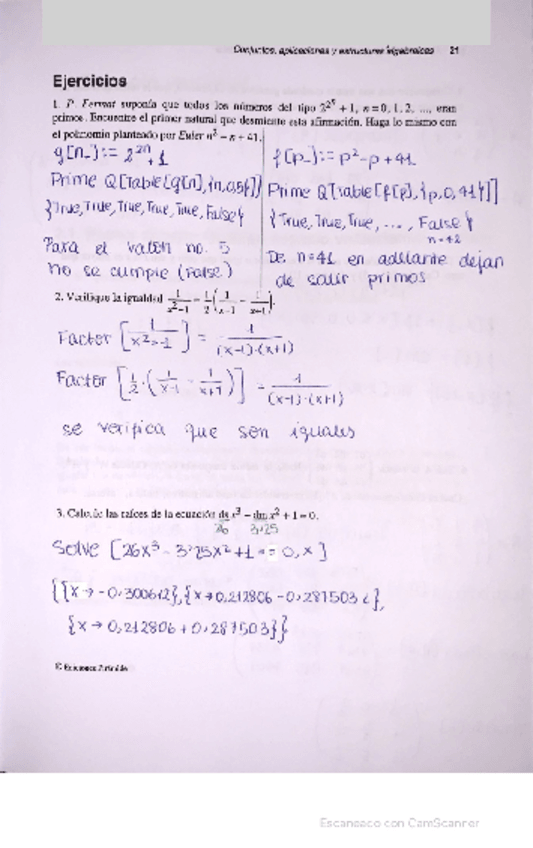 Conjuntos, aplicaciones y estructuras algebraicas 21
Ejercicios
1. P. Fermat suponía que todos los números del tipo 2^2^n + 1, n = 0, 1, 2, ..., eran
primos. Encuentre el primer natural que desmiente esta afirmación. Haga lo mismo con
el polinomio planteado por Euler n² − n + 41.
g[n_] := 2^2n + 1
Prime Q[Table[g[n],{n,0,5}]]
{True, True, True, True, True, False}
Para el valor no. 5
no se cumple (False)
f(p_) := p² - p + 41
Prime Q[Table[f[p],{p,0,41}]]
{True, True, True, ..., False}
n=42
De n=41 en adelante dejan
de salir primos
2. Verifique la igualdad 1/(x²−1) = 1/2 (1/(x−1) − 1/(x+1)).
Factor [1/(x²-1)] = 1/((x-1)·(x+1))
Factor [1/2·(1/(x-1) - 1/(x+1))] = 1/((x-1)·(x+1))
se verifica que son iguales
3. Calcule las raíces de la ecuación x³ − x² + 1 = 0.
26 3,25
Solve [26x³ - 3'25x² + 1 == 0, x]
{{x → -0,300612}, {x → 0,212806 - 0,287503 i},
{x → 0,212806 + 0,287503}}
Escaneado con CamScanner